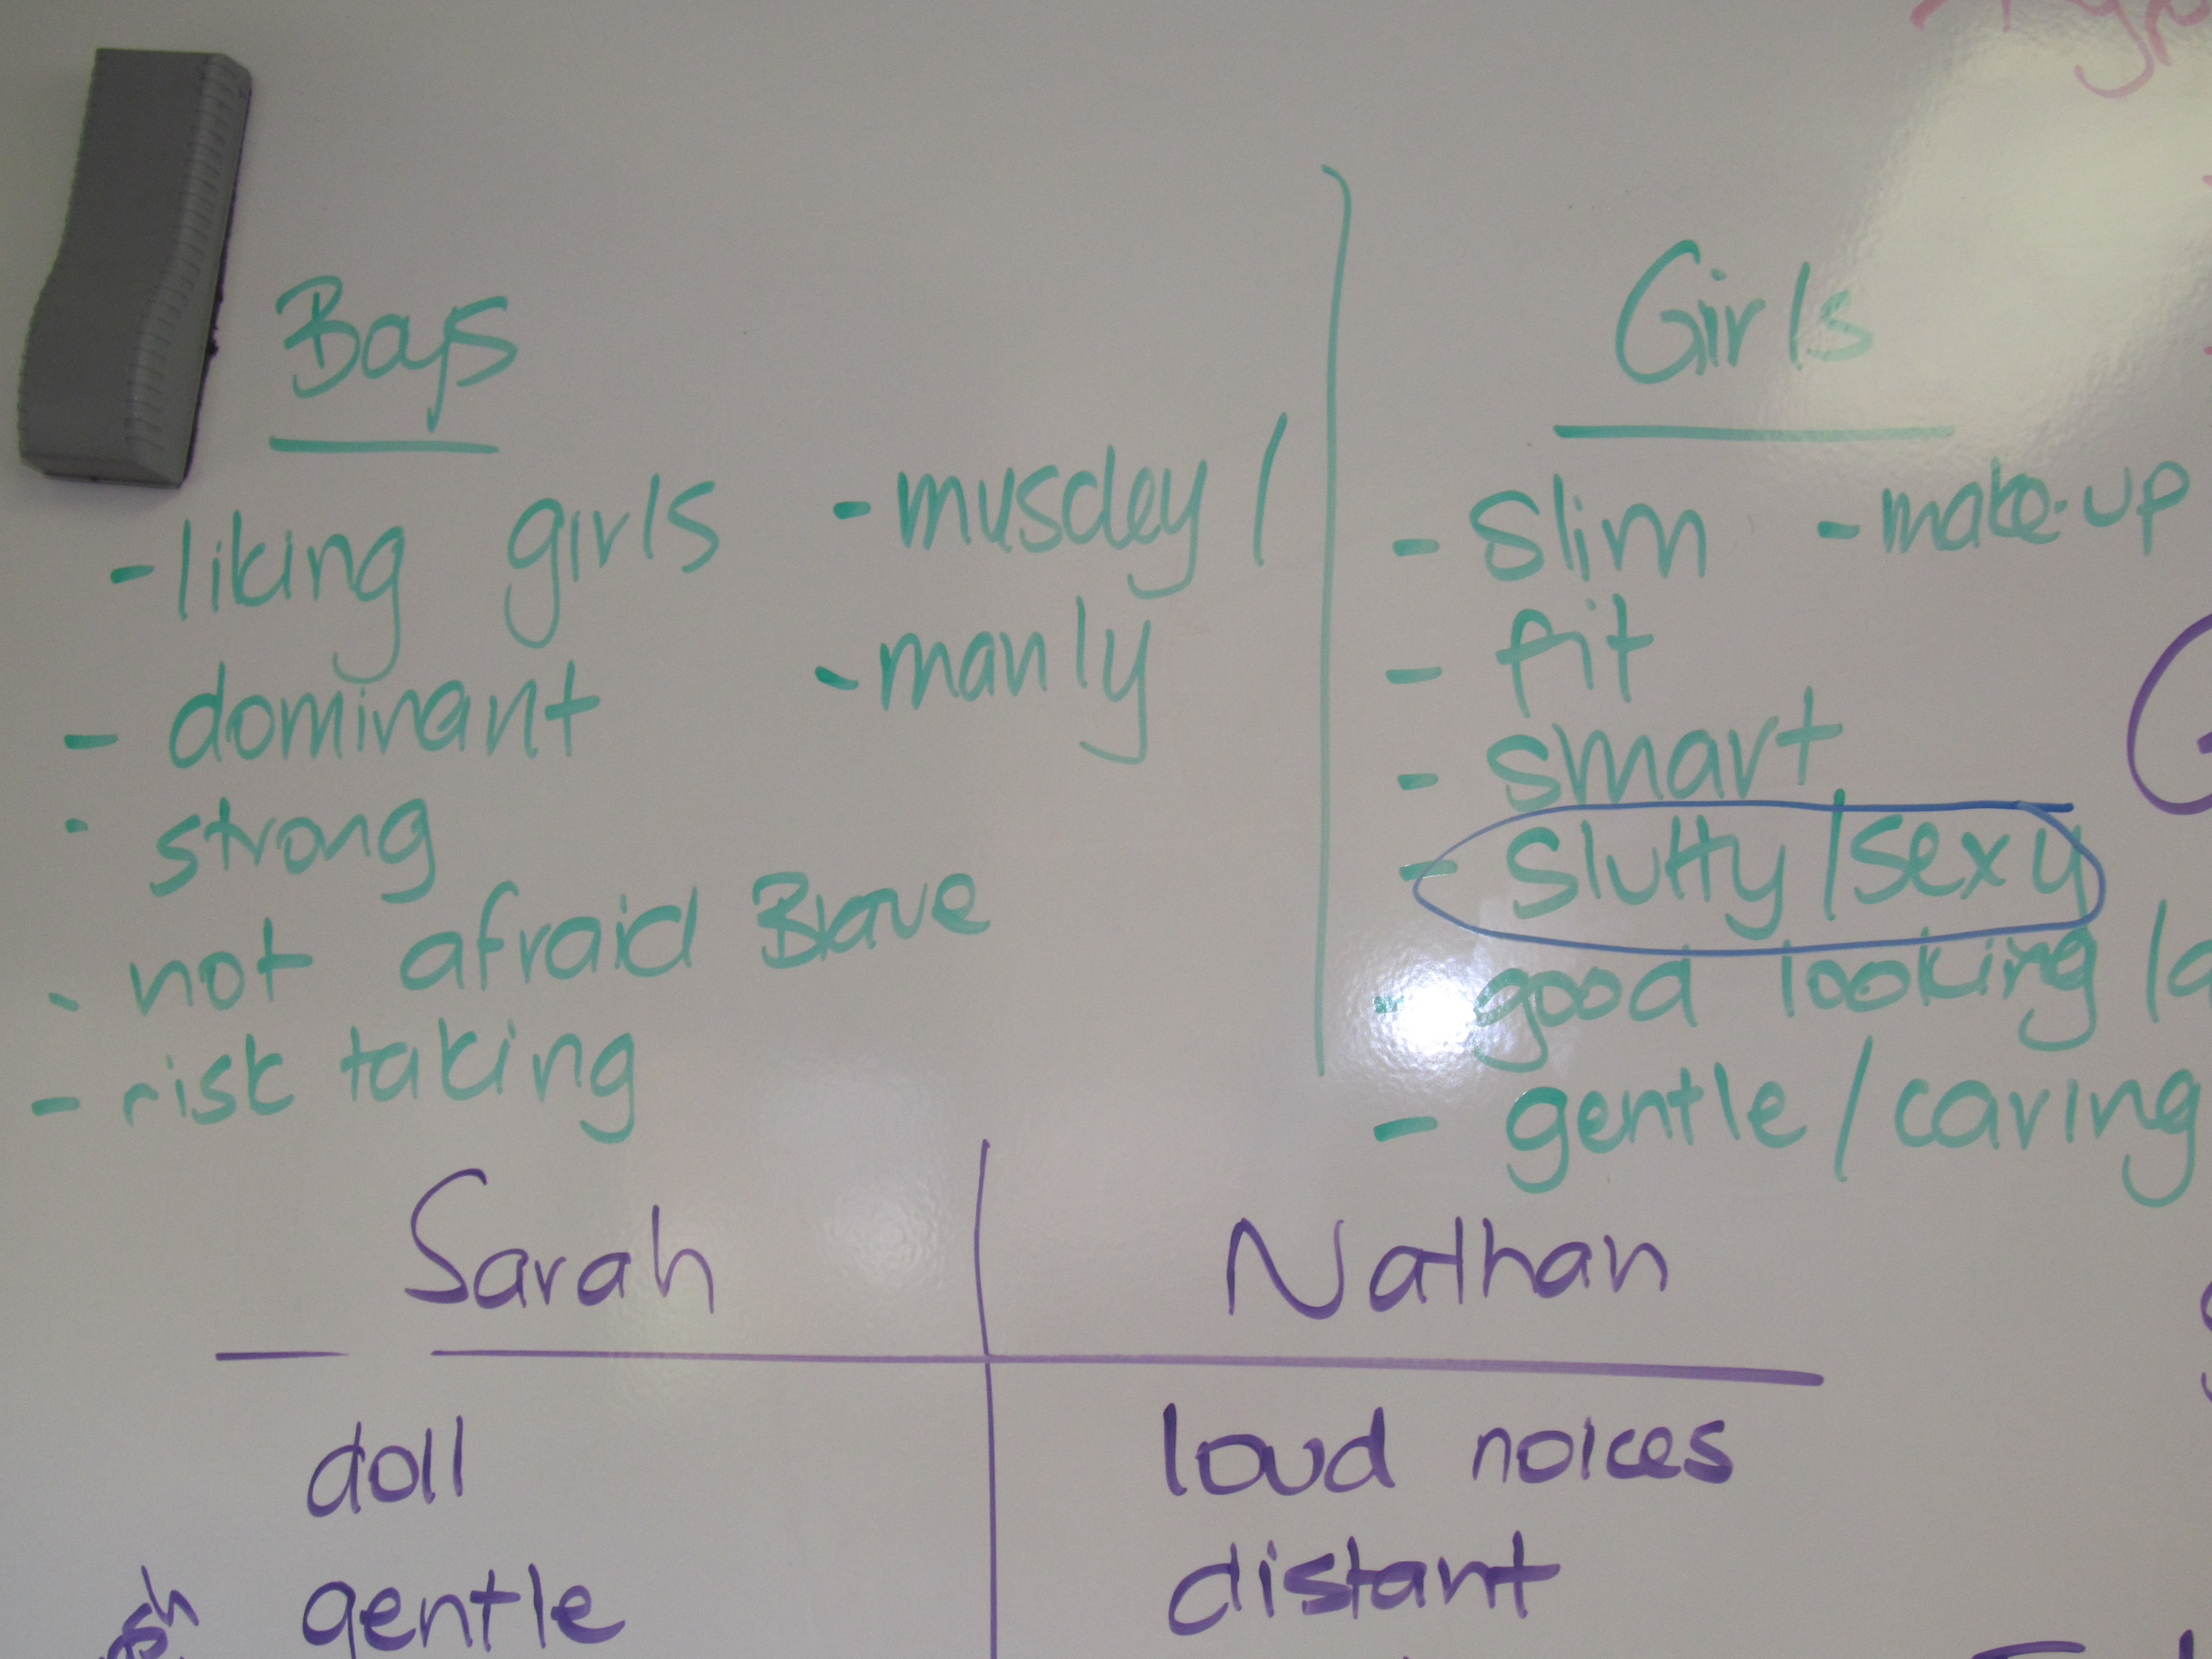 Boys
-liking girls
- dominant
- strong
- not afraid Brave
- risk taking
-muscley /
-manly
Girls
- Slim
- fit
- smart
- Slutty/sexy
- good looking
- gentle / caring
- make-up
Sarah
doll
gentle
Nathan
loud noices
distant